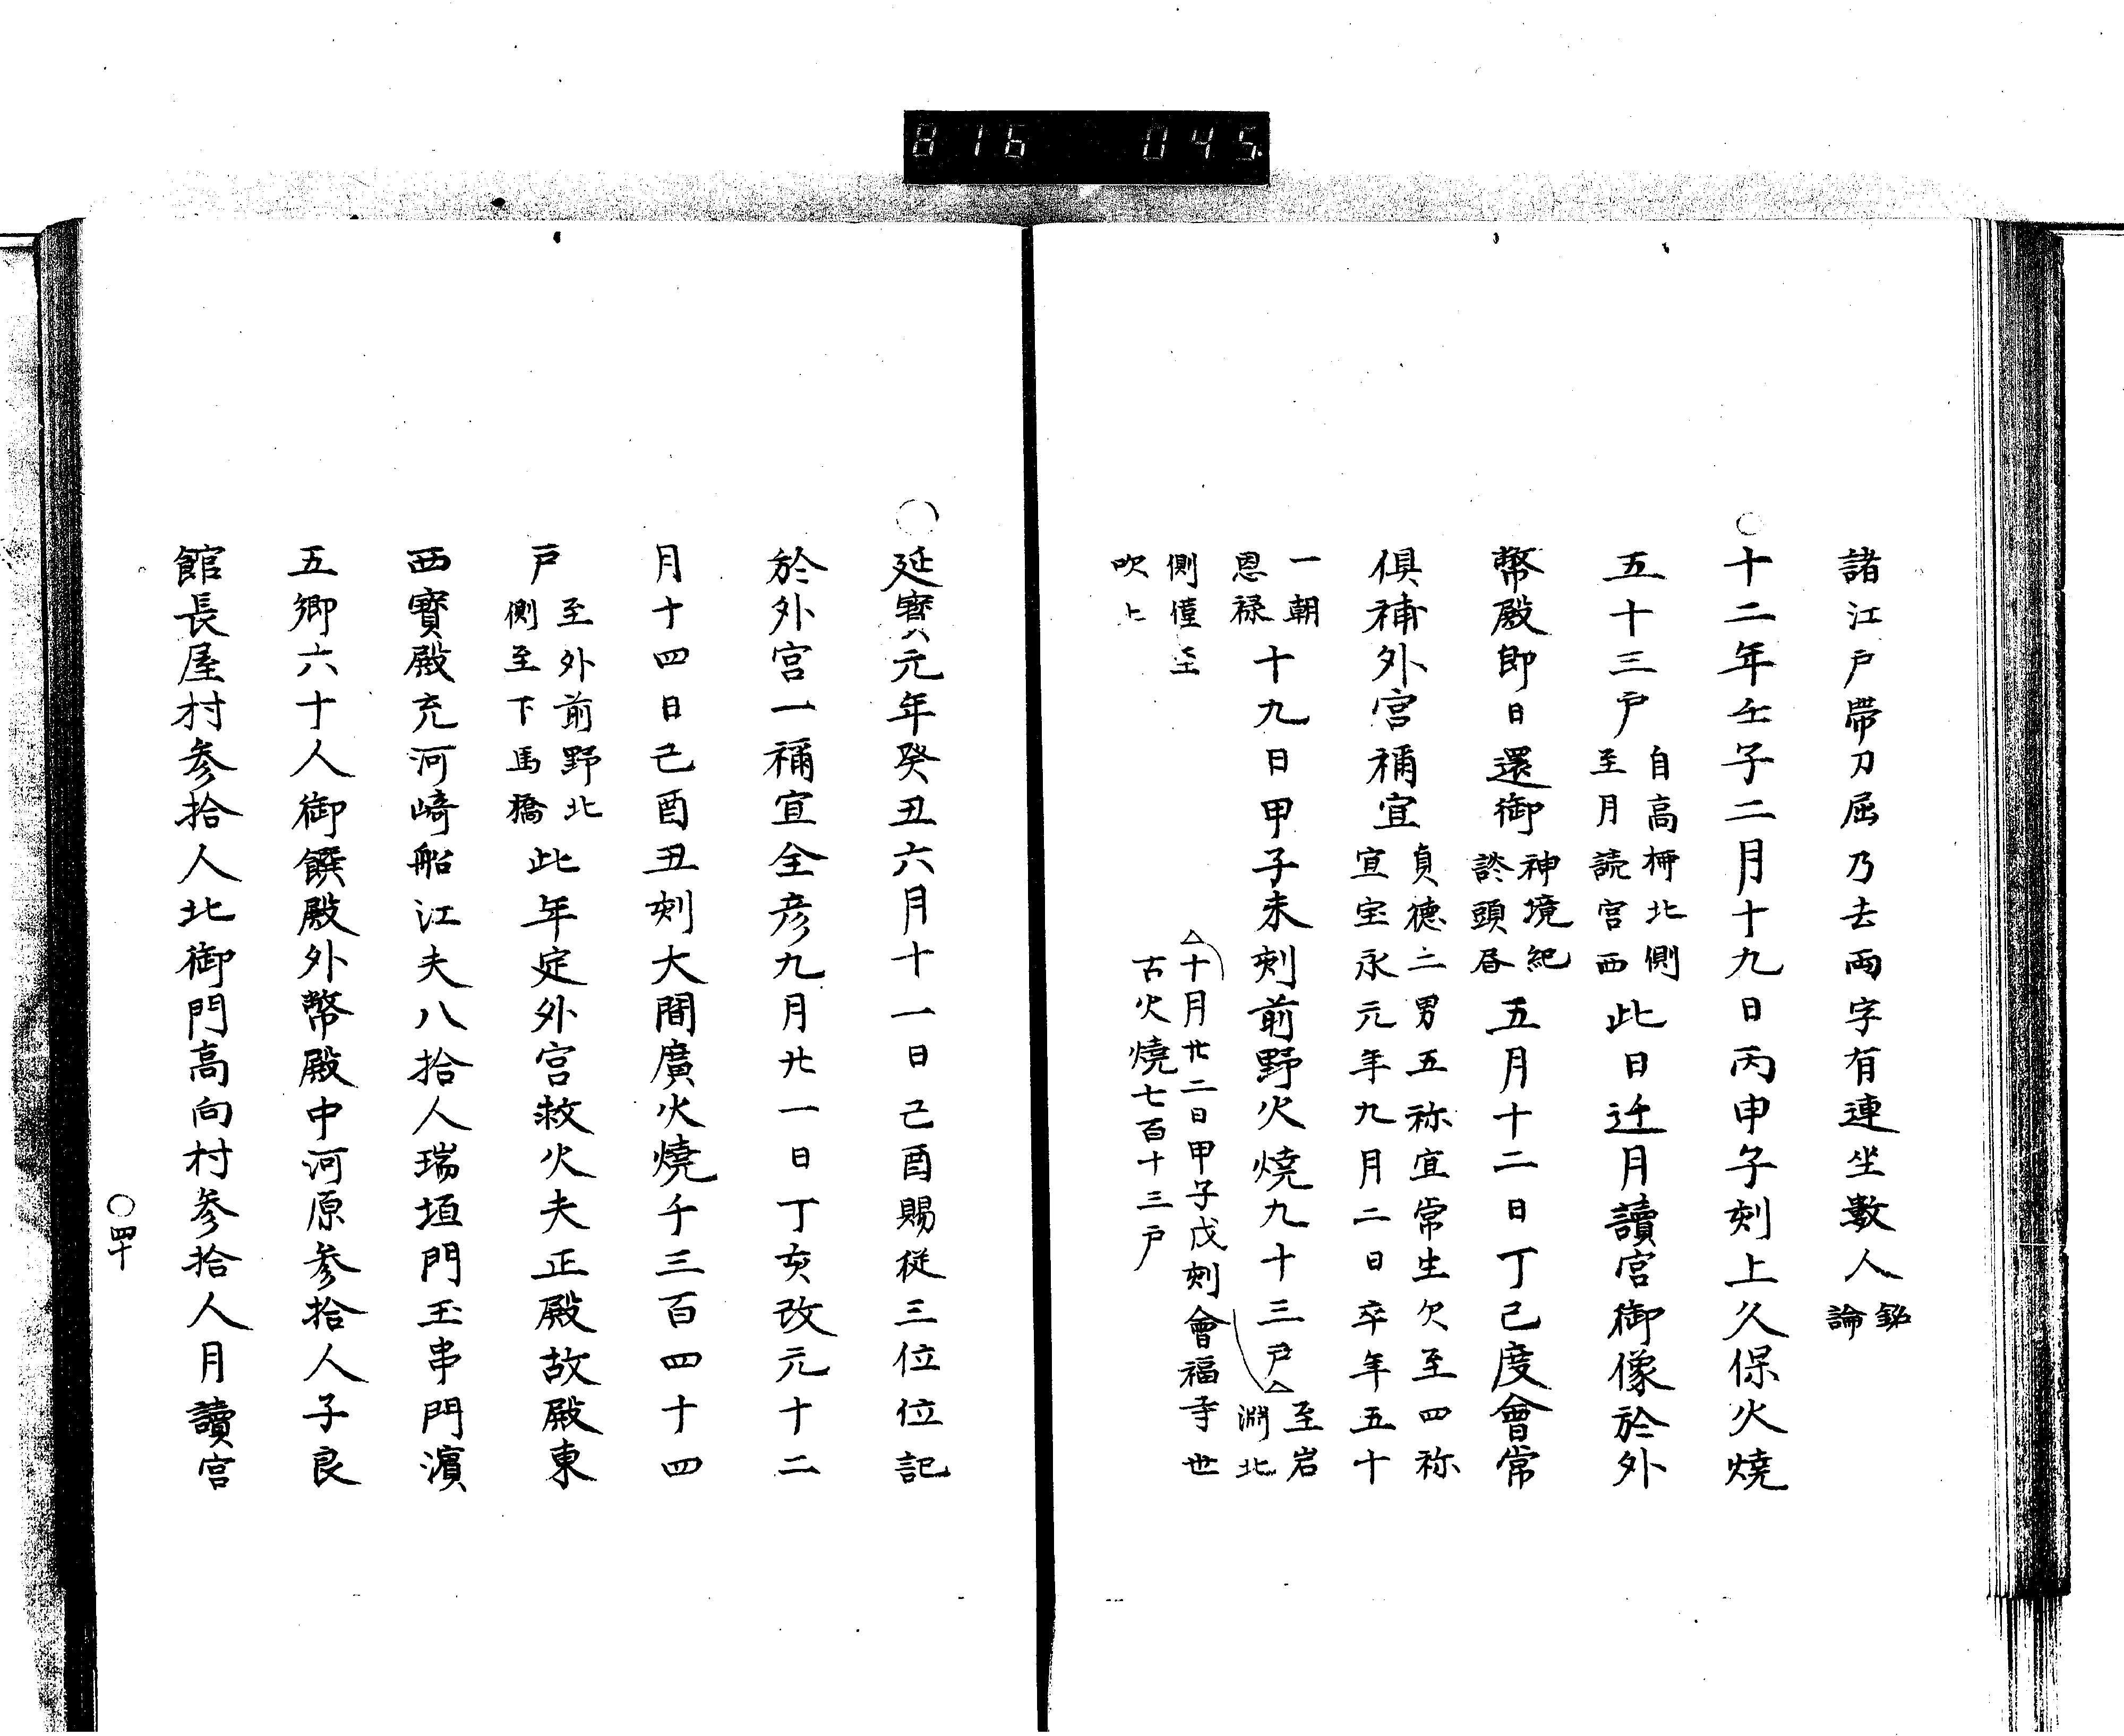 816 045
諸江戸帯刀屈乃去両字有連坐数人
論
〇十二年壬子二月十九日丙申子刻上久保火燒
五十三戸
自高柵北側
至月読宮西
此日迁月讀宮御像於外
幣殿即日還御
神境紀
談頭居
五月十二日丁己度會常
俱補外宮禰宜
貞德二男五祢宜常生欠至四祢
宜宝永元年九月二日卒年五十
一朝
恩禄
十九日甲子未刻前野火燒九十三戸△
至岩
渕北
側僅至
吹上
△十月廿二日甲子戊刻會福寺世
古火燒七百十三戸
〇延寶元年癸丑六月十一日己酉賜従三位位記
於外宮一禰宜全彦九月廿一日丁亥改元十二
月十四日己酉丑刻大間廣火燒千三百四十四
戸
至外前野北
側至下馬橋
此年定外宮救火夫正殿故殿東
西寳殿充河﨑船江夫八拾人瑞垣門玉串門濱
五鄉六十人御饌殿外幣殿中河原参拾人子良
館長屋村参拾人北御門高向村参拾人月讀宮
〇四十